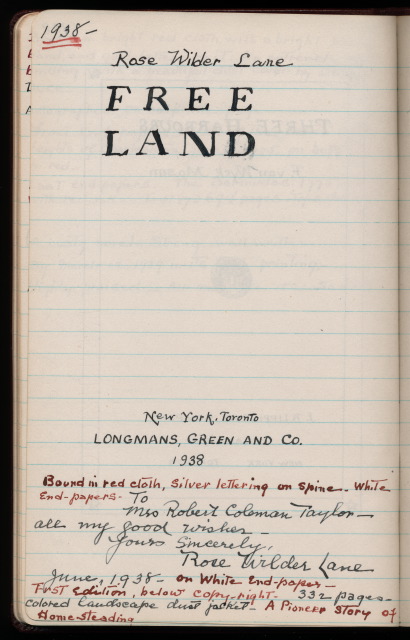 1938-
Rose Wilder Lane
FREE
LAND
New York, Toronto
LONGMANS, GREEN AND CO.
1938
Bound in red cloth, Silver lettering on Spine. White
End-papers.
To
Mrs Robert Coleman Taylor-
all my good wishes-
Yours Sincerely,
Rose Wilder Lane
June, 1938- on White End-paper-
First Edition, below copy-right- 332 pages-
Colored landscape dust jacket. A Pioneer Story of
Home-steading